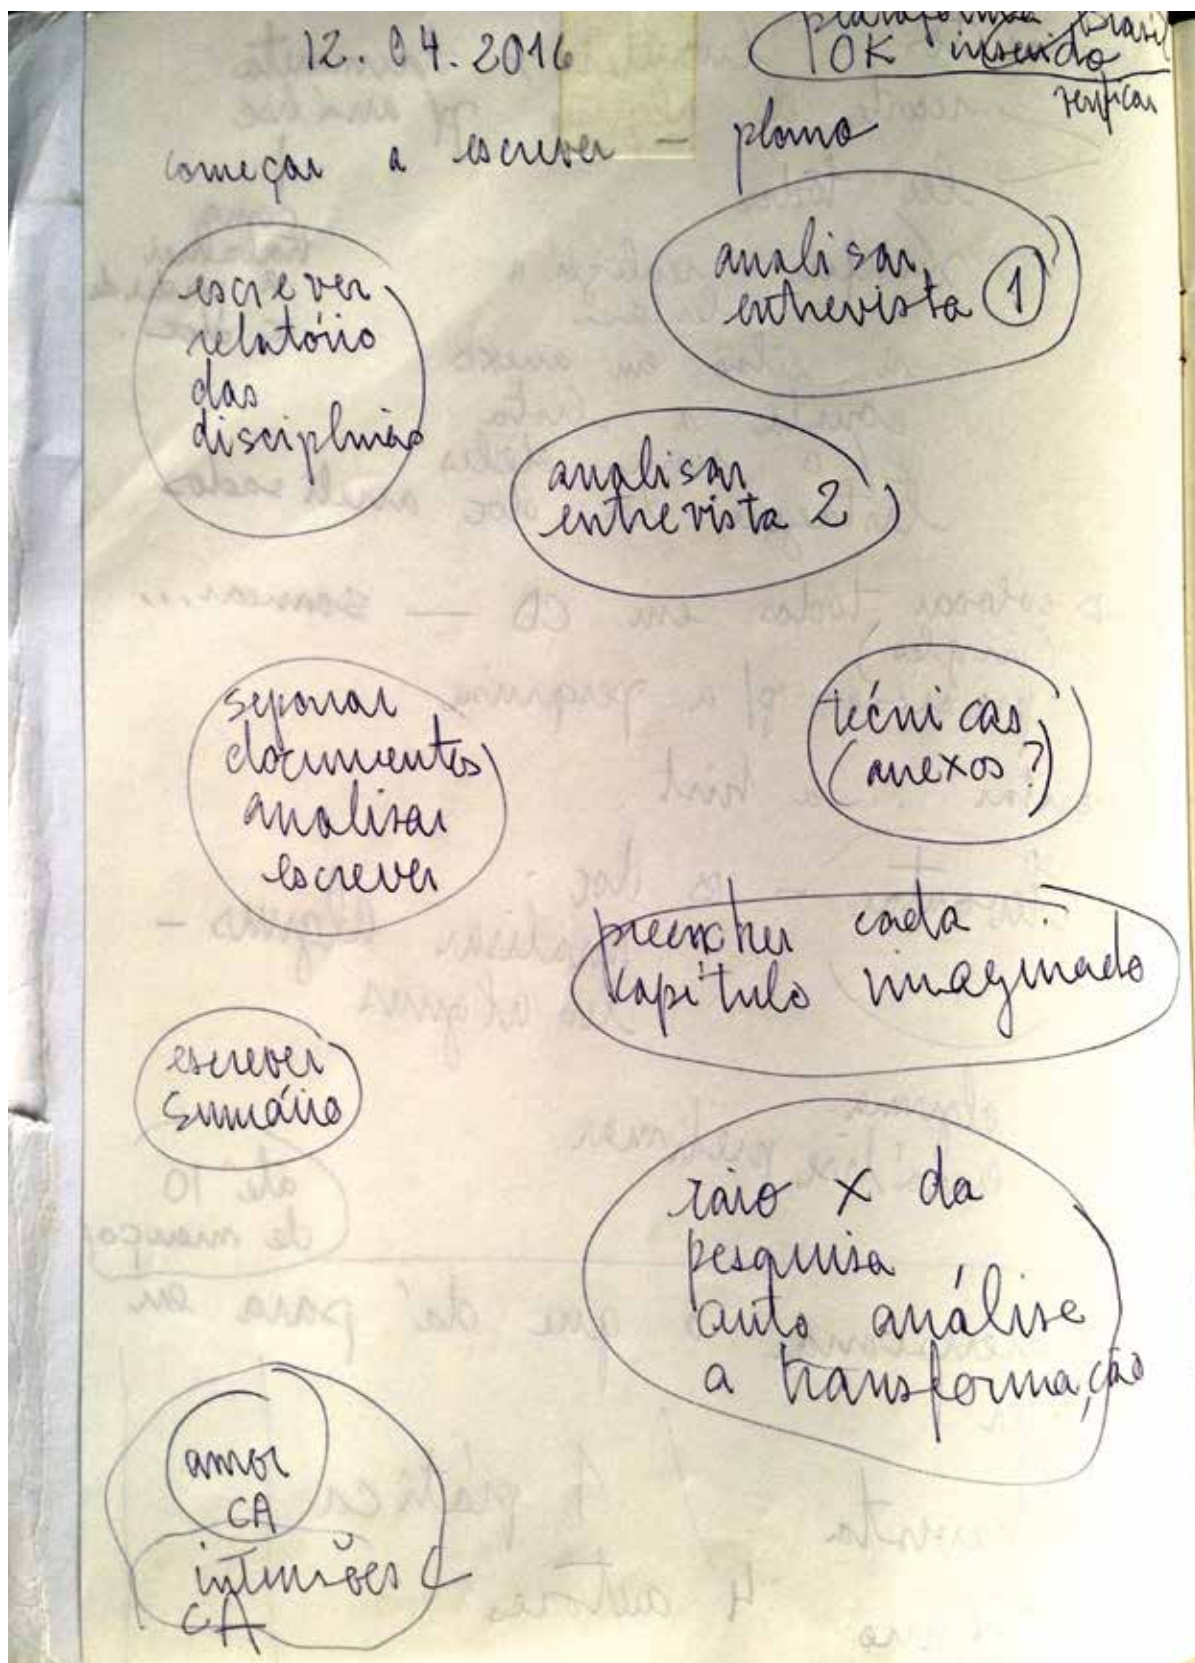 12.04.2016
plataforma Brasil
OK inserido
verificar
começar a escrever - plano
escrever
relatório
das
disciplinas
analisar
entrevista 1
analisar
entrevista 2
separar
documentos
analisar
escrever
técnicas
(anexos?)
preencher cada
kapítulo imaginado
escrever
sumário
raio X da
pesquisa
auto análise
a transformação
amor
CA
intensões C
CA